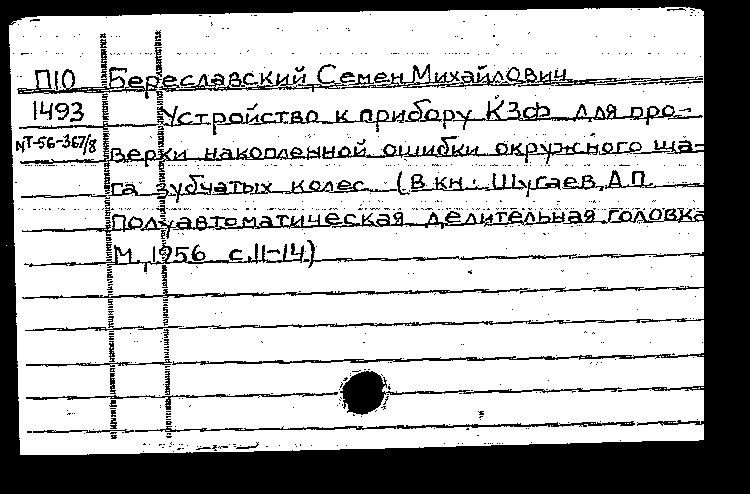 П10 Береславский, Семен Михайлович
1493 Устройство к прибору КЗФ для про-
NT-56-367/8 верки накопленной ошибки окружного ша-
га зубчатых колес. (В кн.: Шугаев, А.П.
Полуавтоматическая делительная головка
М., 1956 с.11-14)